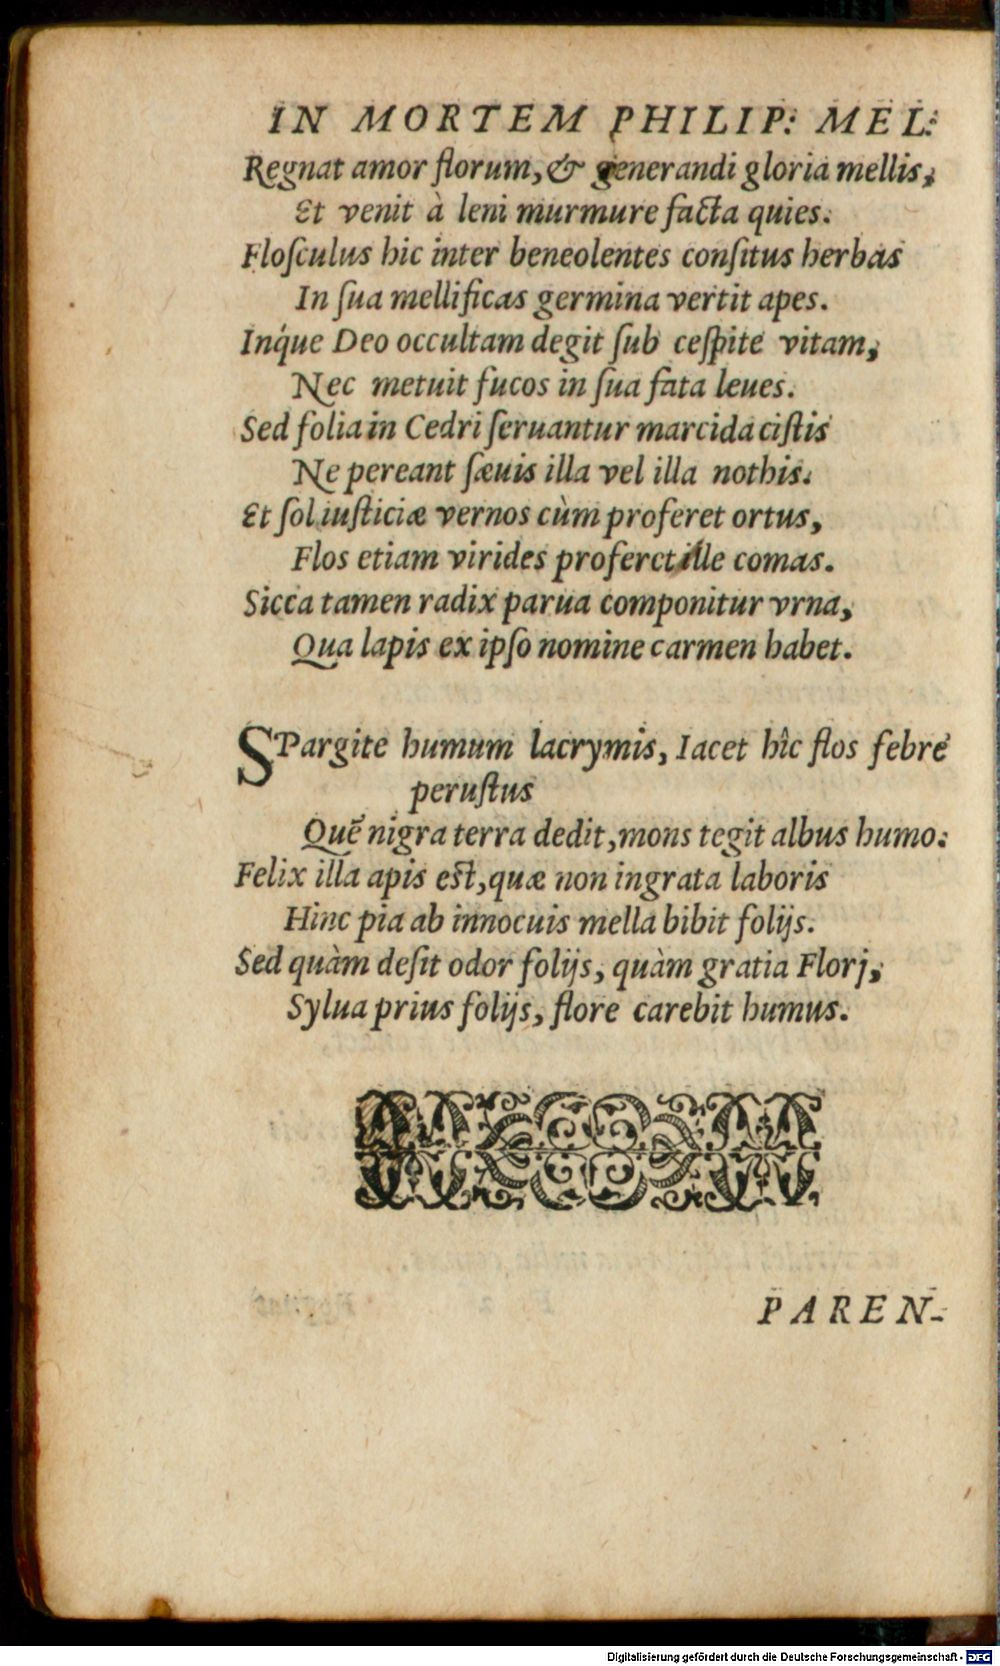 IN MORTEM PHILIP: MEL:
Regnat amor florum, & generandi gloria mellis,
Et venit à leni murmure facta quies.
Flosculus hic inter beneolentes conſitus herbas
In ſua mellificas germina vertit apes.
Inq́ue Deo occultam degit ſub ceſpite vitam,
Nec metuit fucos in ſua fata leues.
Sed folia in Cedri ſeruantur marcida ciſtis
Ne pereant ſæuis illa vel illa nothis.
Et ſol iuſticiæ vernos cùm proferet ortus,
Flos etiam virides proferet ille comas.
Sicca tamen radix parua componitur vrna,
Qua lapis ex ipſo nomine carmen habet.
SPargite humum lacrymis, Iacet hîc flos febre
peruſtus
Quẽ nigra terra dedit, mons tegit albus humo:
Felix illa apis eſt, quæ non ingrata laboris
Hinc pia ab innocuis mella bibit folijs.
Sed quàm deſit odor folijs, quàm gratia Flori,
Sylua prius folijs, flore carebit humus.
PAREN-
Digitalisierung gefördert durch die Deutsche Forschungsgemeinschaft - DFG